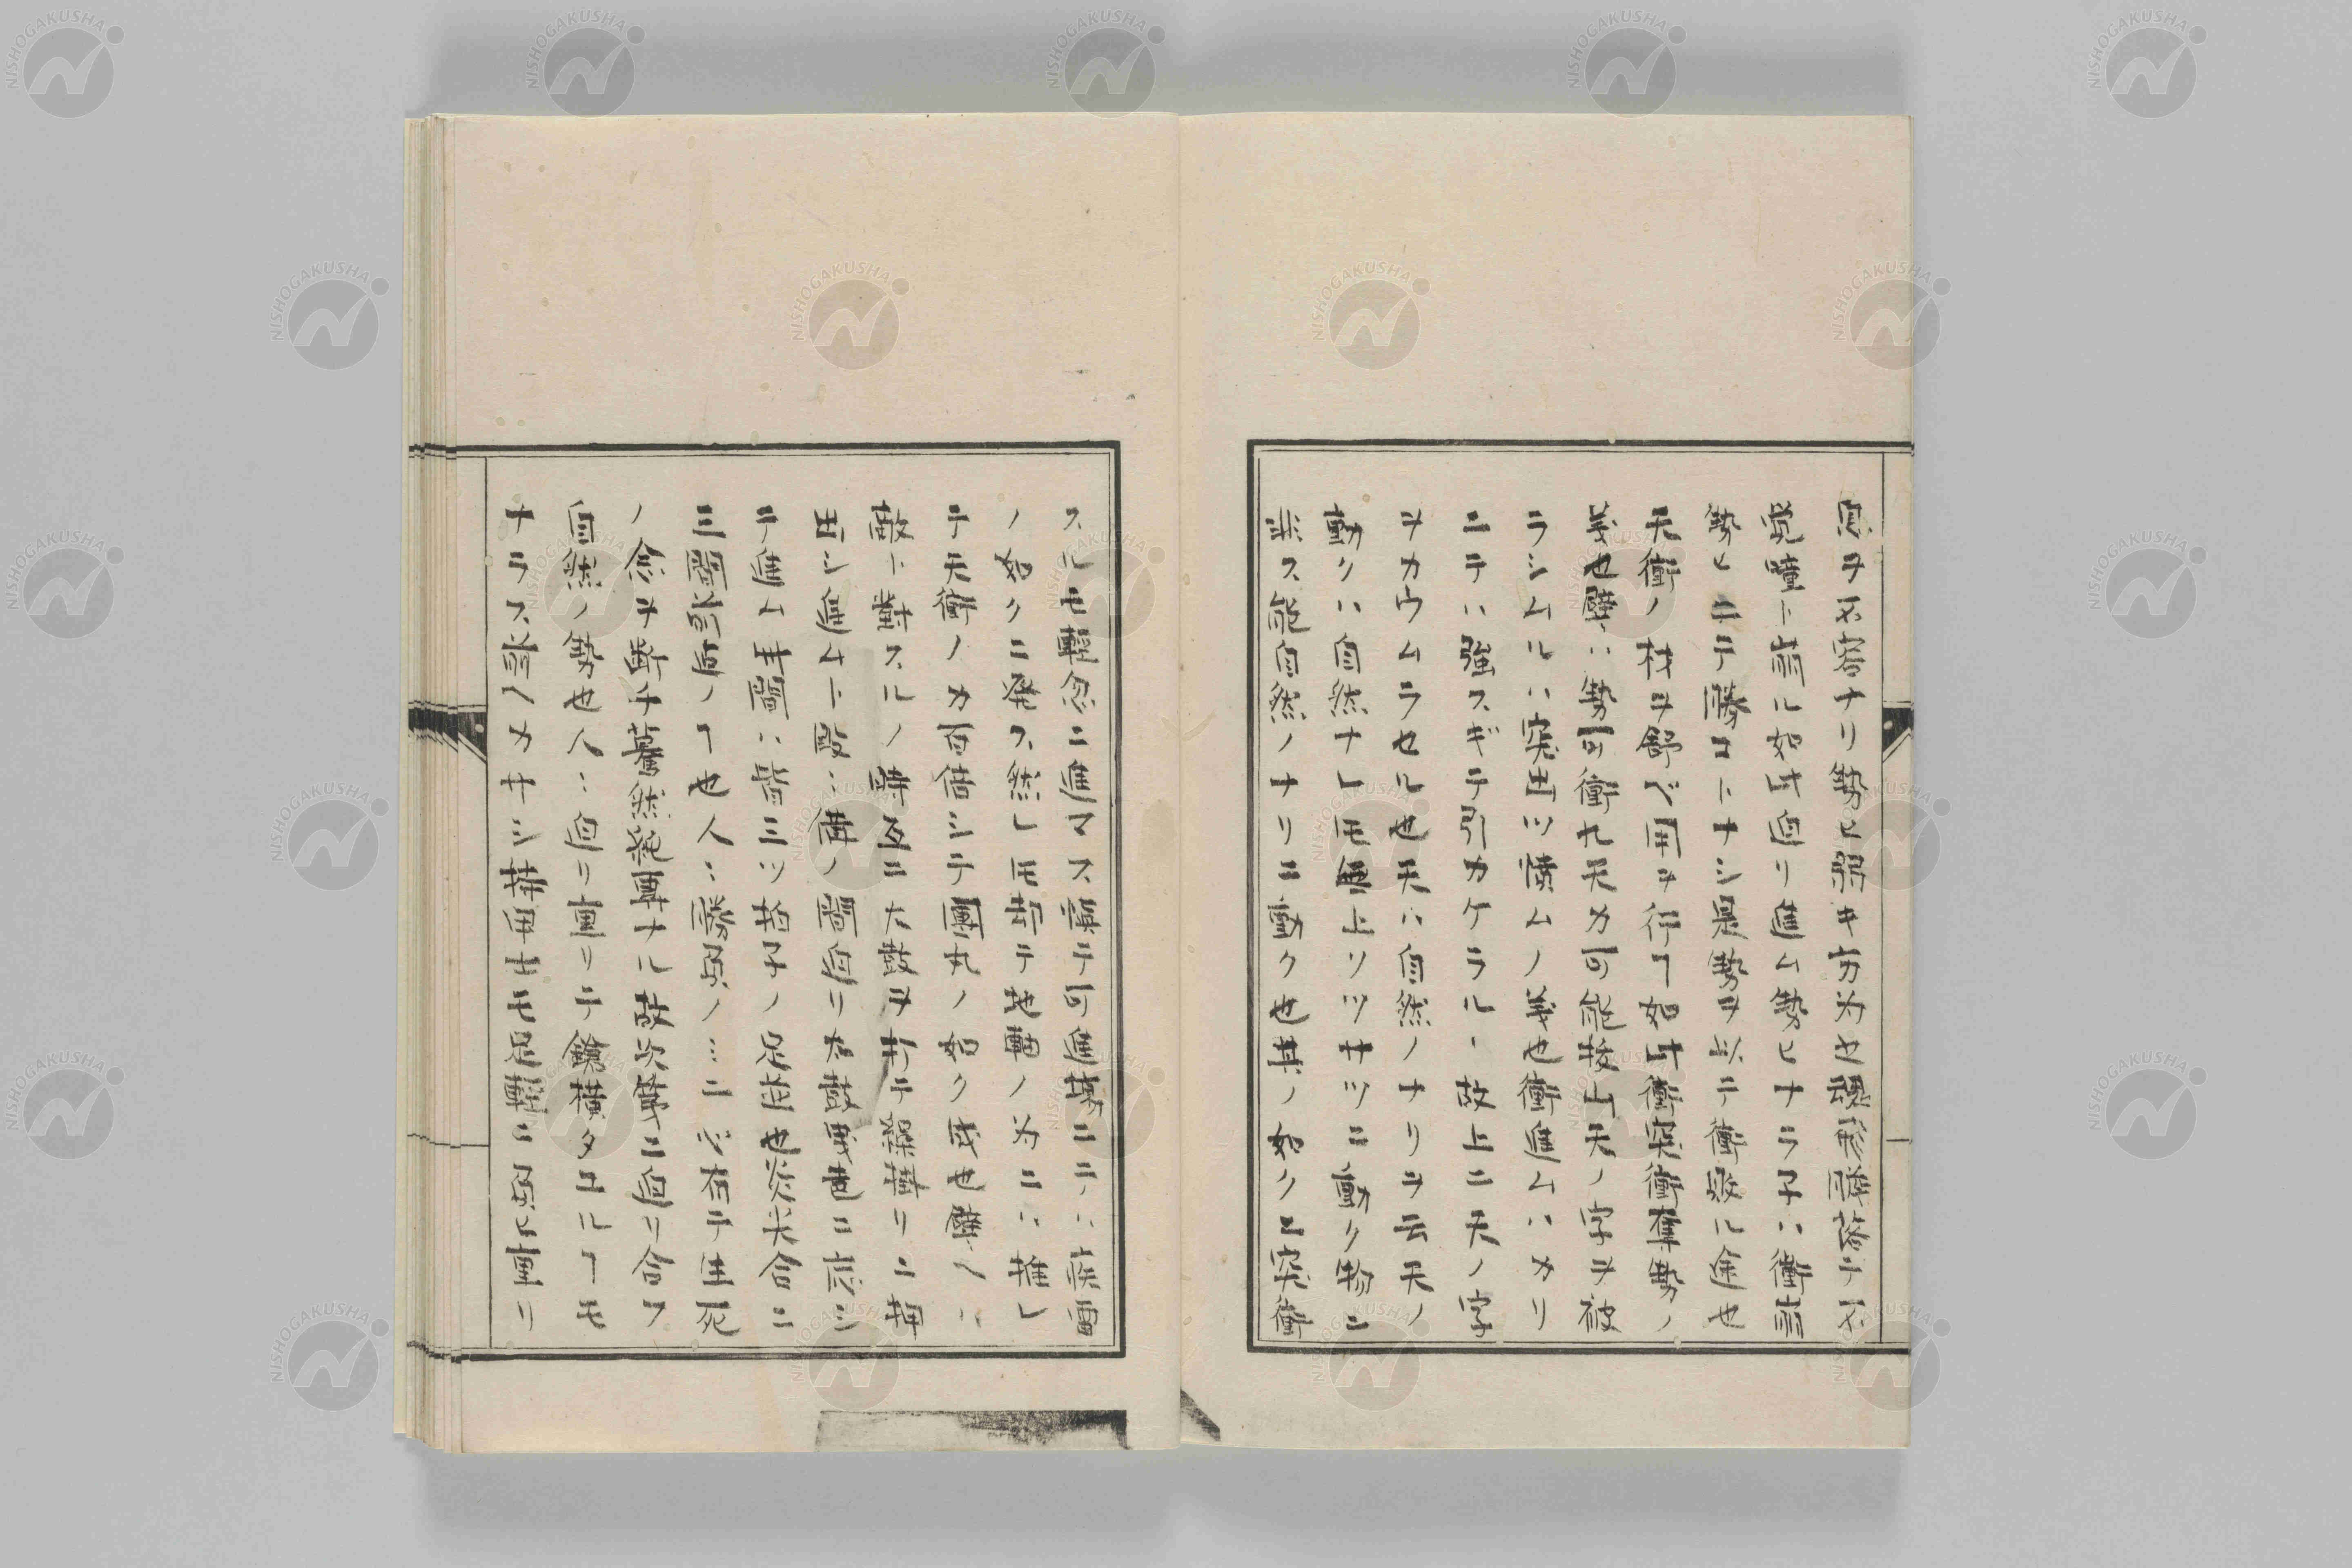 息ヲ不容ナリ勢ヒ弱キ方為也魂形脱落テ不
覚瞳ト前ル如此自リ進ム勢ヒナラ子ハ衝前
勢ヒニテ勝コトナシ是勢ヲ以テ衝敗ル企也
天衝ノ材ヲ舒ベ用ヲ行フ如此衝突衝奪勢ノ
義也譬ハ勢可衝九天カ可能抜山天ノ字ヲ被
ラシムルハ突出ツ憤ムノ義也衝進ムハカリ
ニテハ強スギテ引カケラル、故上ニ天ノ字
ヲカウムラセル也天ハ自然ノナリヲ云天ノ
動クハ自然ナレ𪜈上ソツサツニ動ク物ニ
非ス能自然ノナリニ動ク也其ノ如クニ突衝
スルモ軽忽ニ進マス慎テ可進撓ニニハ疾雷
ノ如クニ発ス然レ𪜈打テ地軸ノ為ニハ推レ
テ天衝ノカ百倍シテ團丸ノ如ク成也譬ヘハ
敵ト對スルノ時互ニ大鼓ヲ打テ躁撓リニ押
出シ進ムト敗ハ備ノ間自リ大鼓曳芭ニ応シ
テ進ム其間ハ皆三ツ拍子ノ足並也炎米合ニ
三間前迠ノフ也人ハ勝負ノ…ニジ有テ生死
ノ念ヲ断チ驀然純専ナル故次第ニ自リ合フ
自然ノ勢也人ハ自リ重リテ鎗横タヱルフモ
ナラス前ノカサシ構毎サモ足軽ニ負ヒ重リ